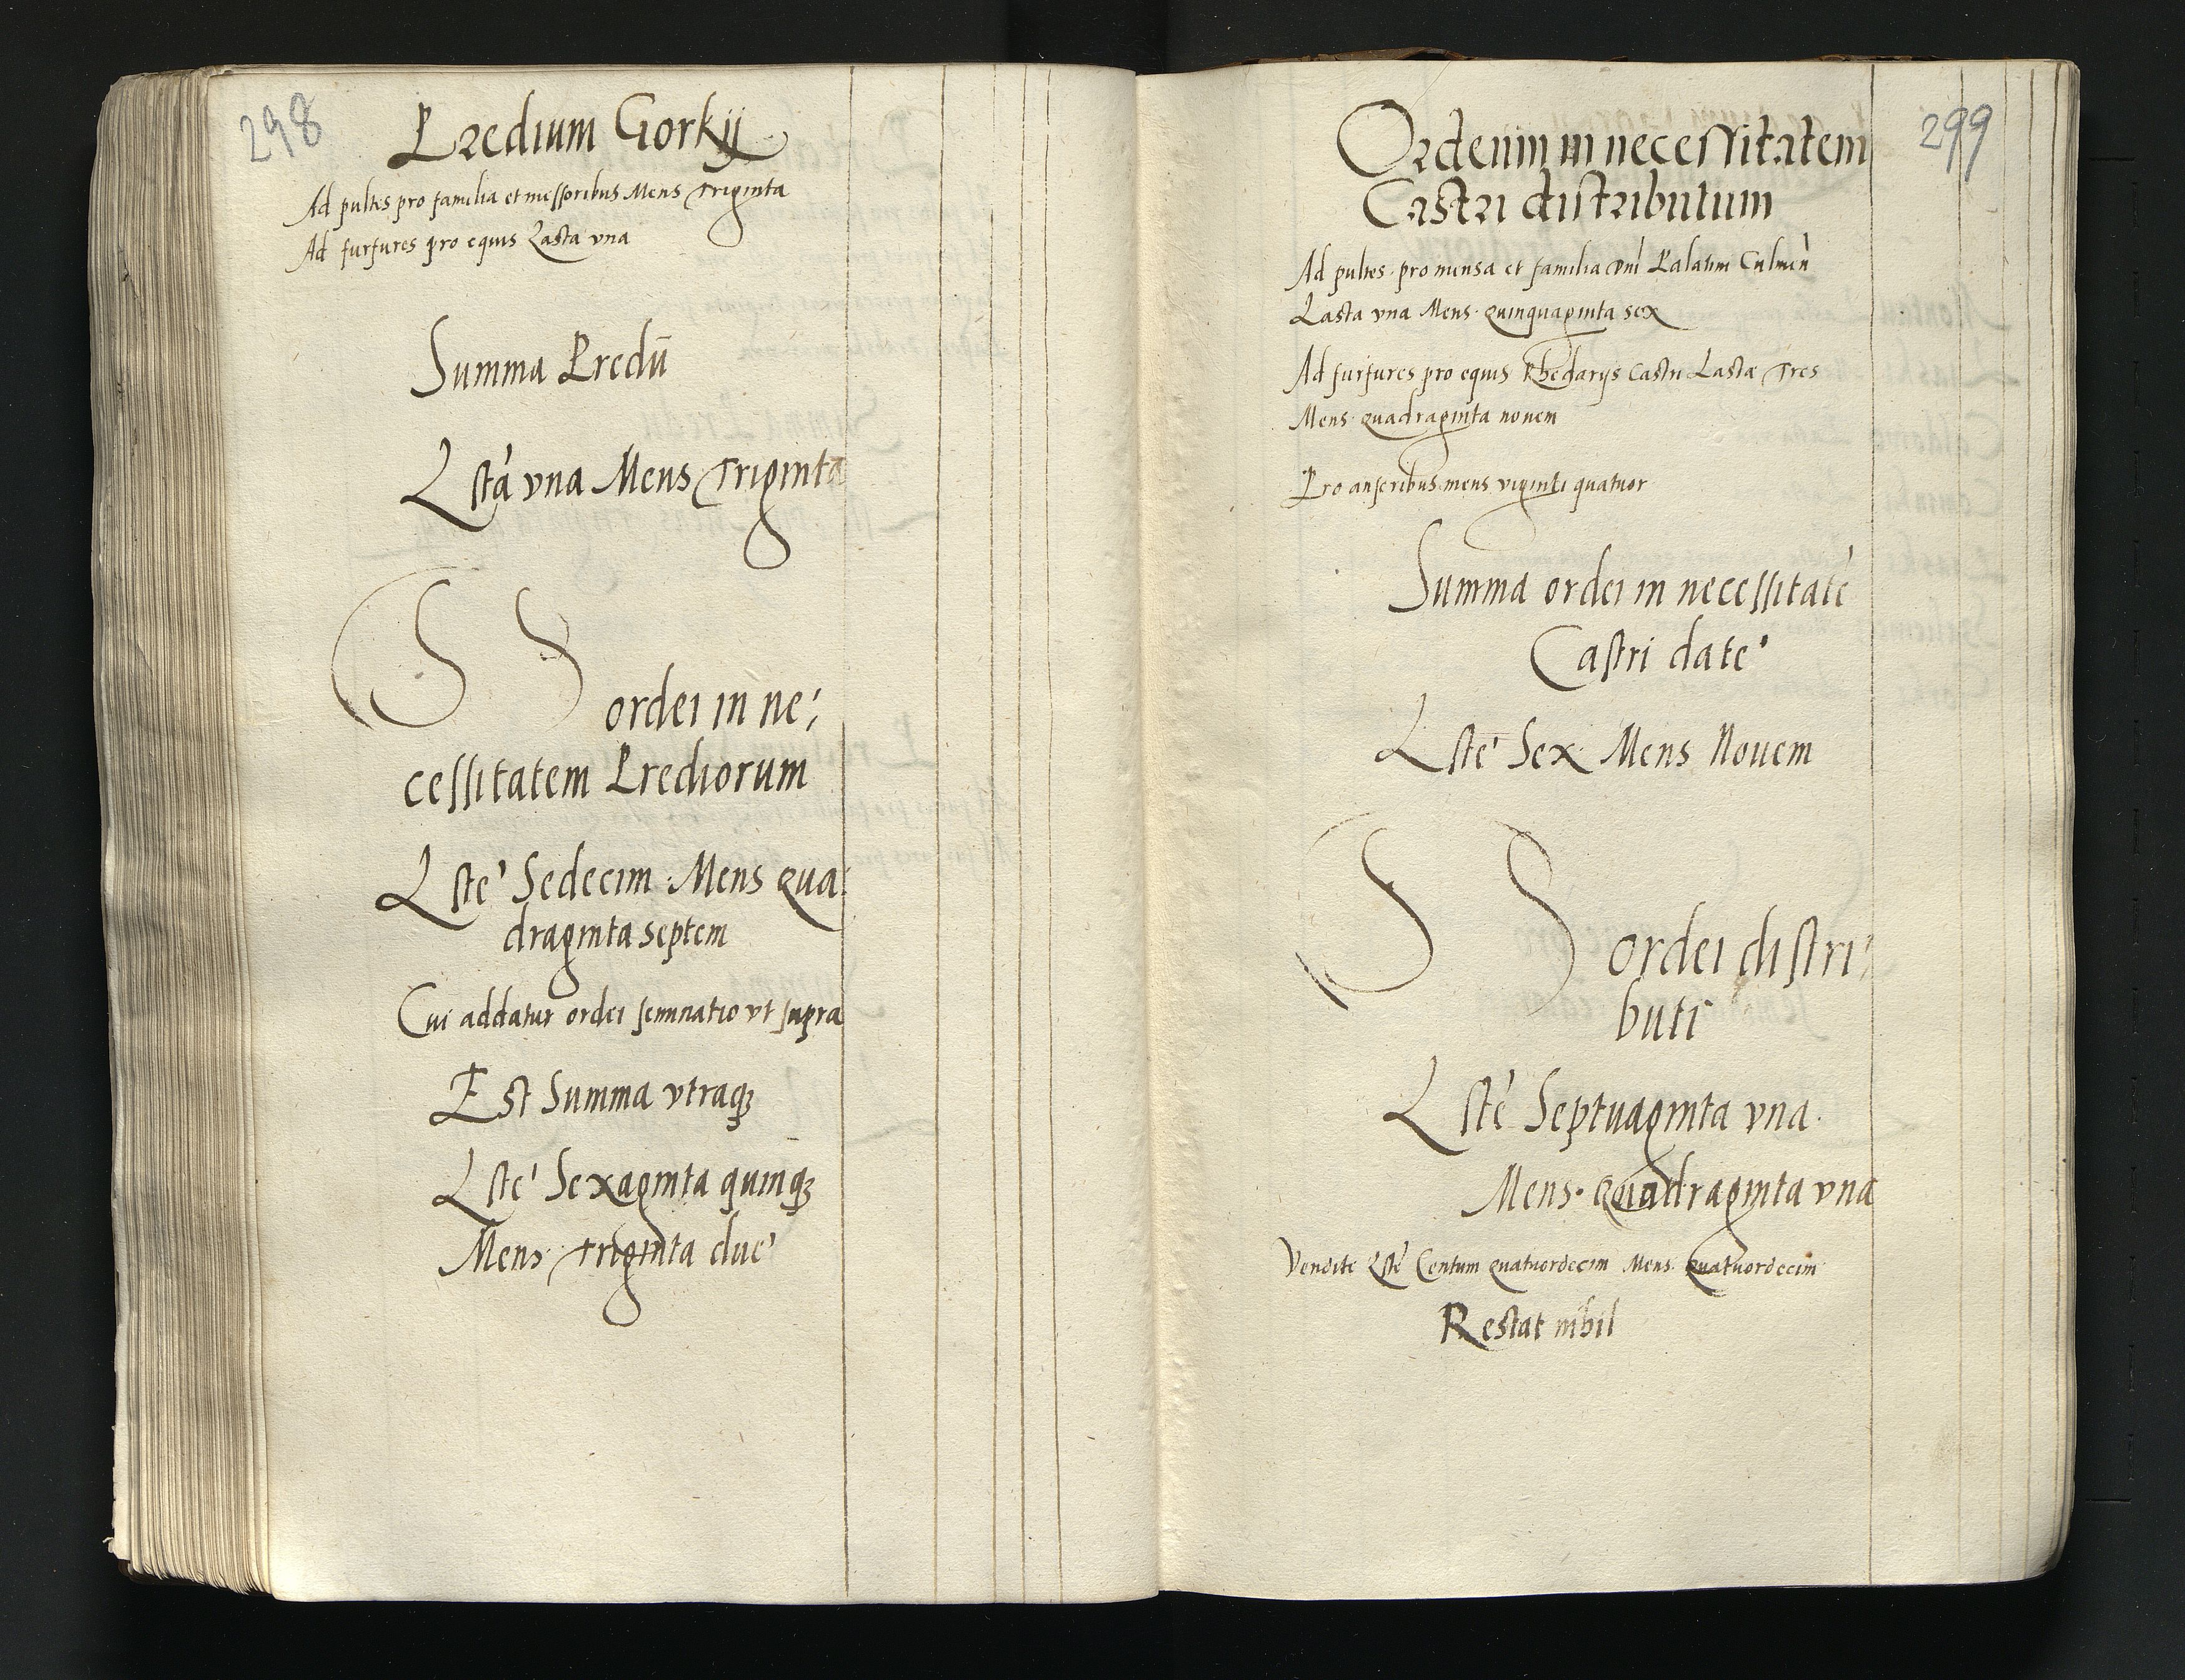 298
Predium Gorky
Ad pultes pro familia et messoribus Mens Triginta
Ad furfures pro equis Lasta vna
Summa Predii
Lsta vna Mens Triginta
SS ordei in ne,
cessitatem Prediorum
Lste Sedecim Mens qua:
draginta septem
Cui addatur ordei seminatio vt supra
Est Summa vtraq3
Lste Sexaginta quinq3
Mens Triginta due
299
Ordeum in necessitatem
Castri distributum
Ad pultes pro mensa et familia dni Palatini Culmen
Lasta vna Mens quinquaginta sex
Ad furfures pro equis Rhedarys Castri Lastæ Tres
Mens quadraginta nouem
Pro anseribus mens viginti quatuor
Summa ordei in necessitatē
Castri date
Lste Sex Mens Nouem
SS ordei distri,
buti
Lste Septuaginta vna
Mens. quadraginta vna
Vendite Lste Centum quatuordecim Mens quatuordecim
Restat nihil